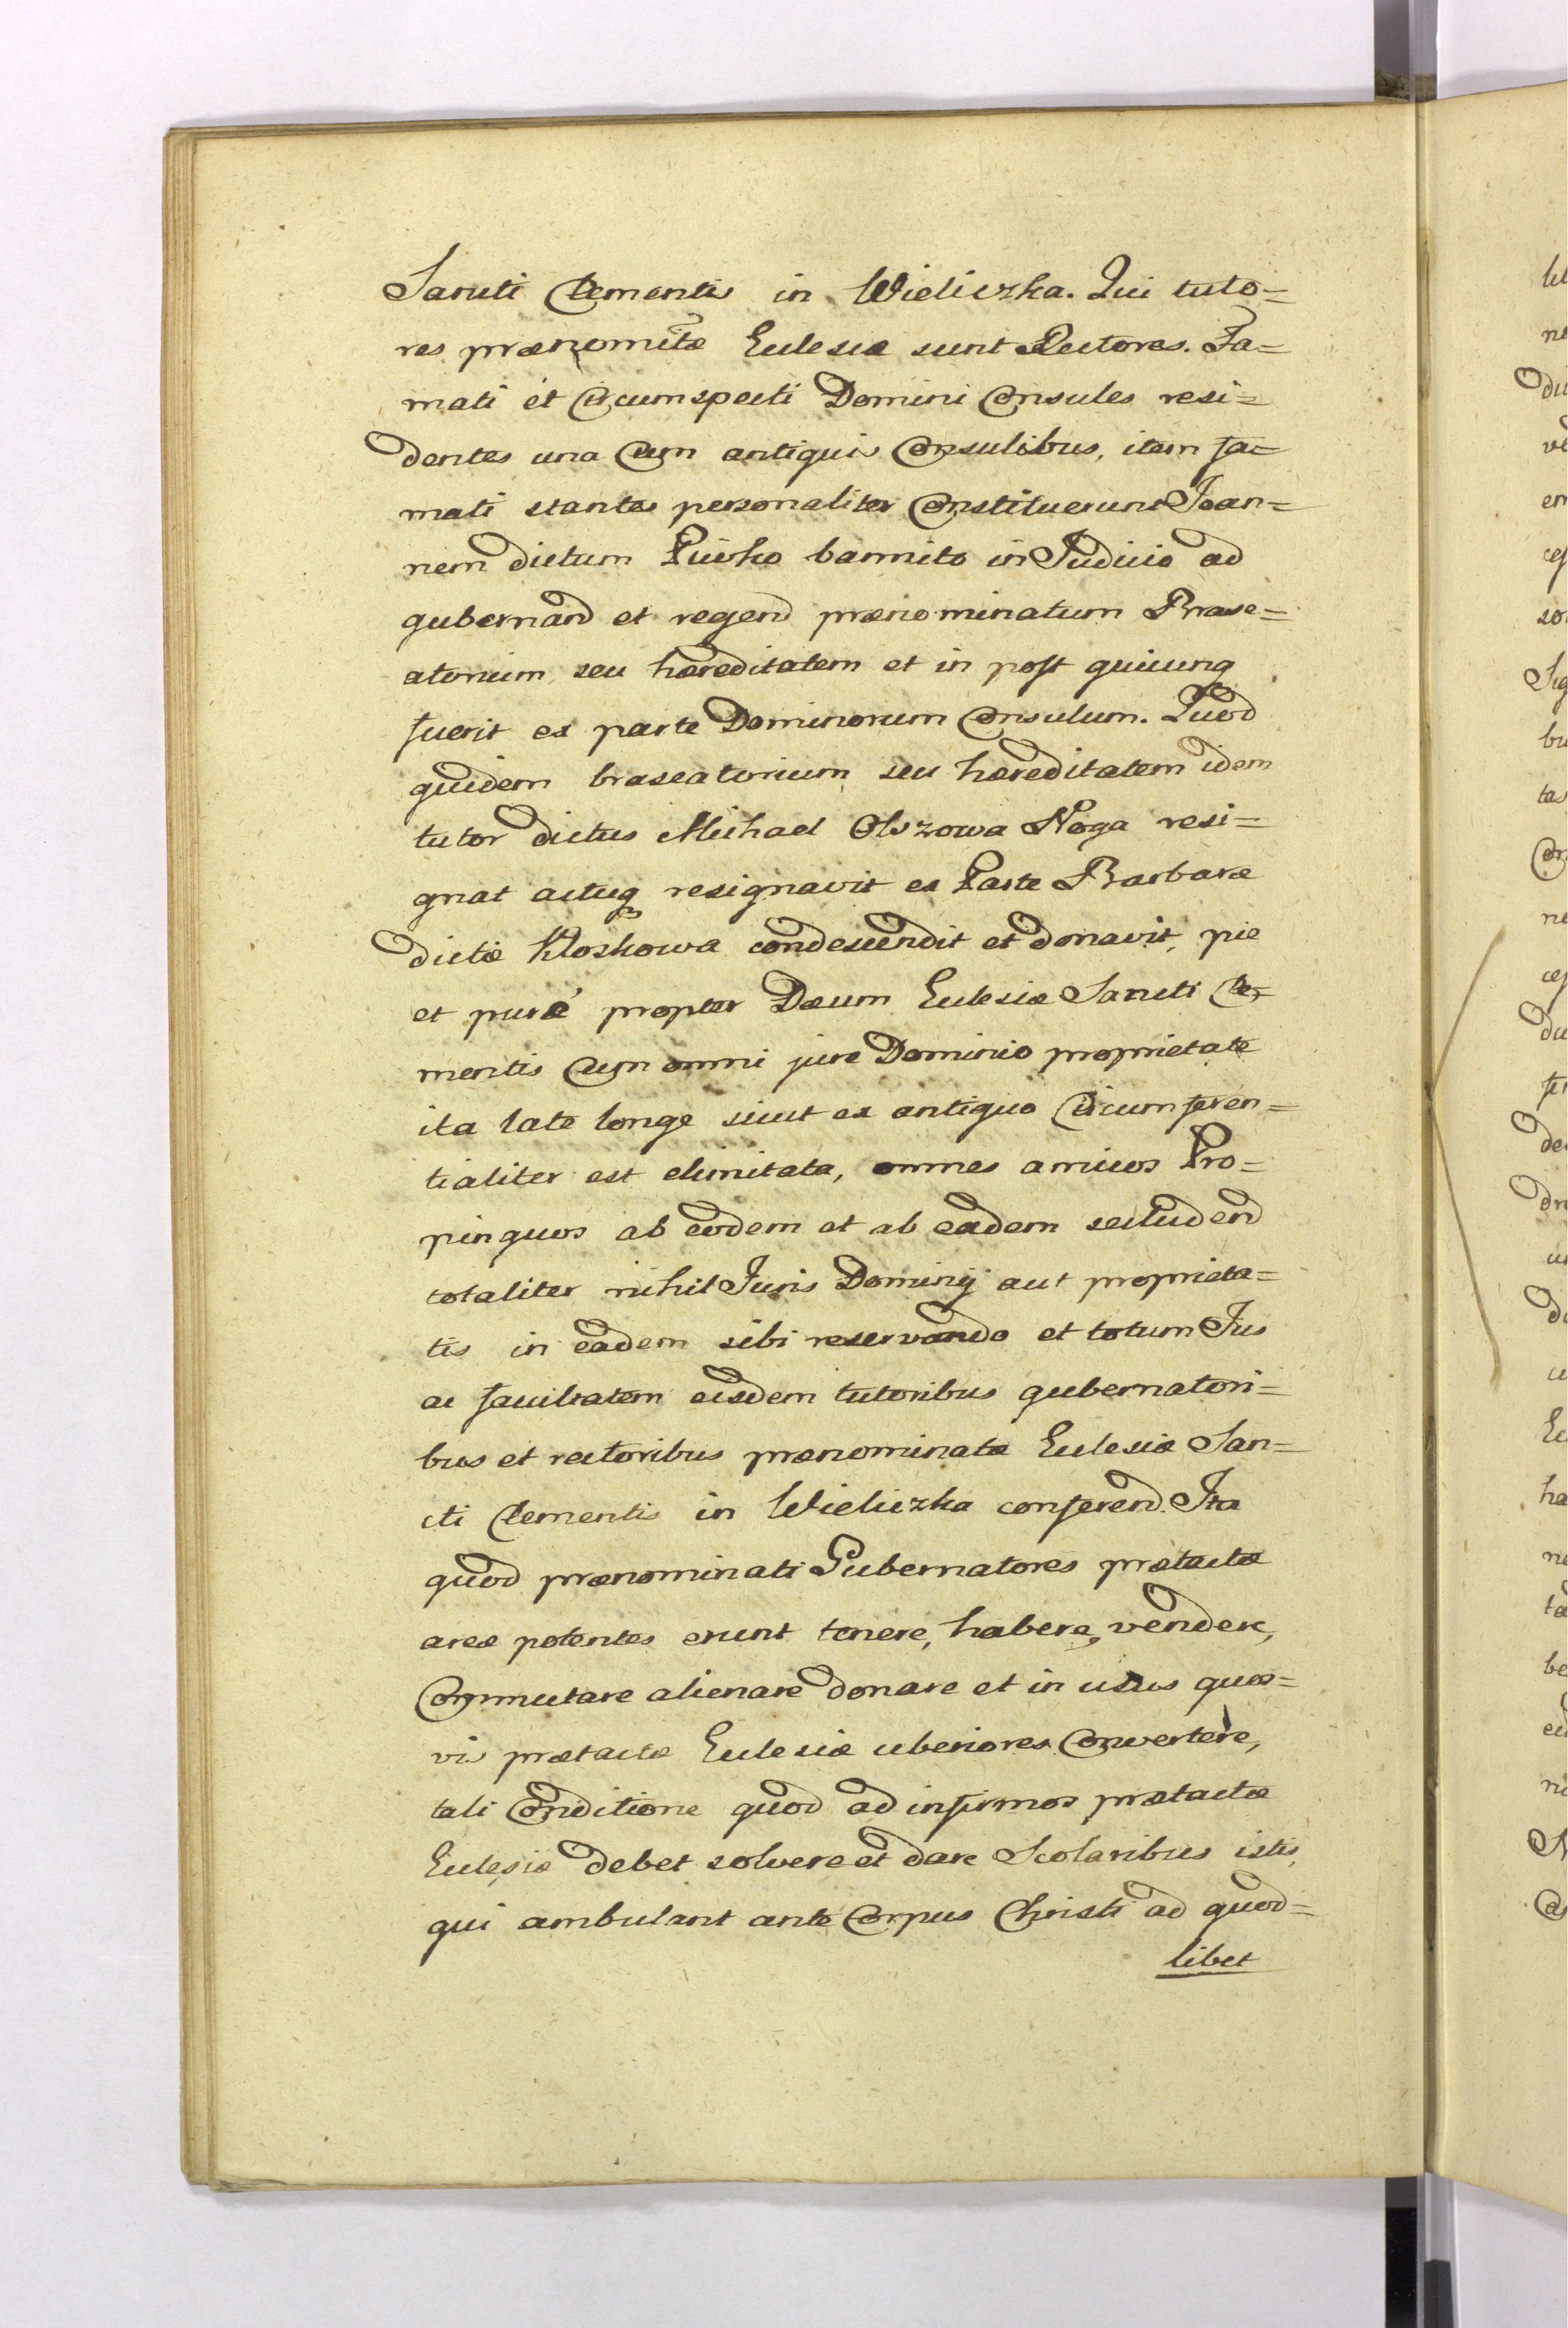 Sancti Clementis in Wieliczka. Qui tuto=
res prænomitæ Eclesiæ sunt Rectores. Fa=
mati et Circumspecti Domini Consules resi=
dentes una Cum antiquis Consulibus, item fa=
mati stantes personaliter Constituerunt Joan=
nem dictum Piwko bannito in Judicio ad
gubernand et regend prænominatum Brase=
atorium seu hæreditatem et in post quicunq
fuerit ex parte Dominorum Consulum. Quod
quidem braseatorium seu hæreditatem idem
tutor dictus Michael Olszowa Noga resi=
gnat actuq resignavit ex Parte Barbaræ
dictæ Kloskowa condescendit et donavit, pie
et puré propter Dæum Eclesiæ Sancti Cle=
mentis Cum omni jure Dominio proprietate
ita late longe sicut ex antiquo Circumferen=
tialiter est elimitata, omnes amicos Pro=
pinquos ab eodem et ab eadem secludend
totaliter nihil Juris Dominij aut proprieta=
tis in eadem sibi reservando et totum Jus
ac facultatem eisdem tutoribus gubernatori=
bus et rectoribus prænominatæ Eclesiæ San=
cti Clementis in Wieliczka conferend. Ita
quod prænominati Gubernatores prætactæ
areæ potentes erunt tenere, habere, vendere,
Commutare alienare donare et in usus quos=
vis prætactæ Eclesiæ uberiores Convertere,
tali Conditione quod ad infirmos prætactæ
Eclesiæ debet solvere et dare Scolaribus istis,
qui ambulant ante Corpus Christi ad quod=
libet